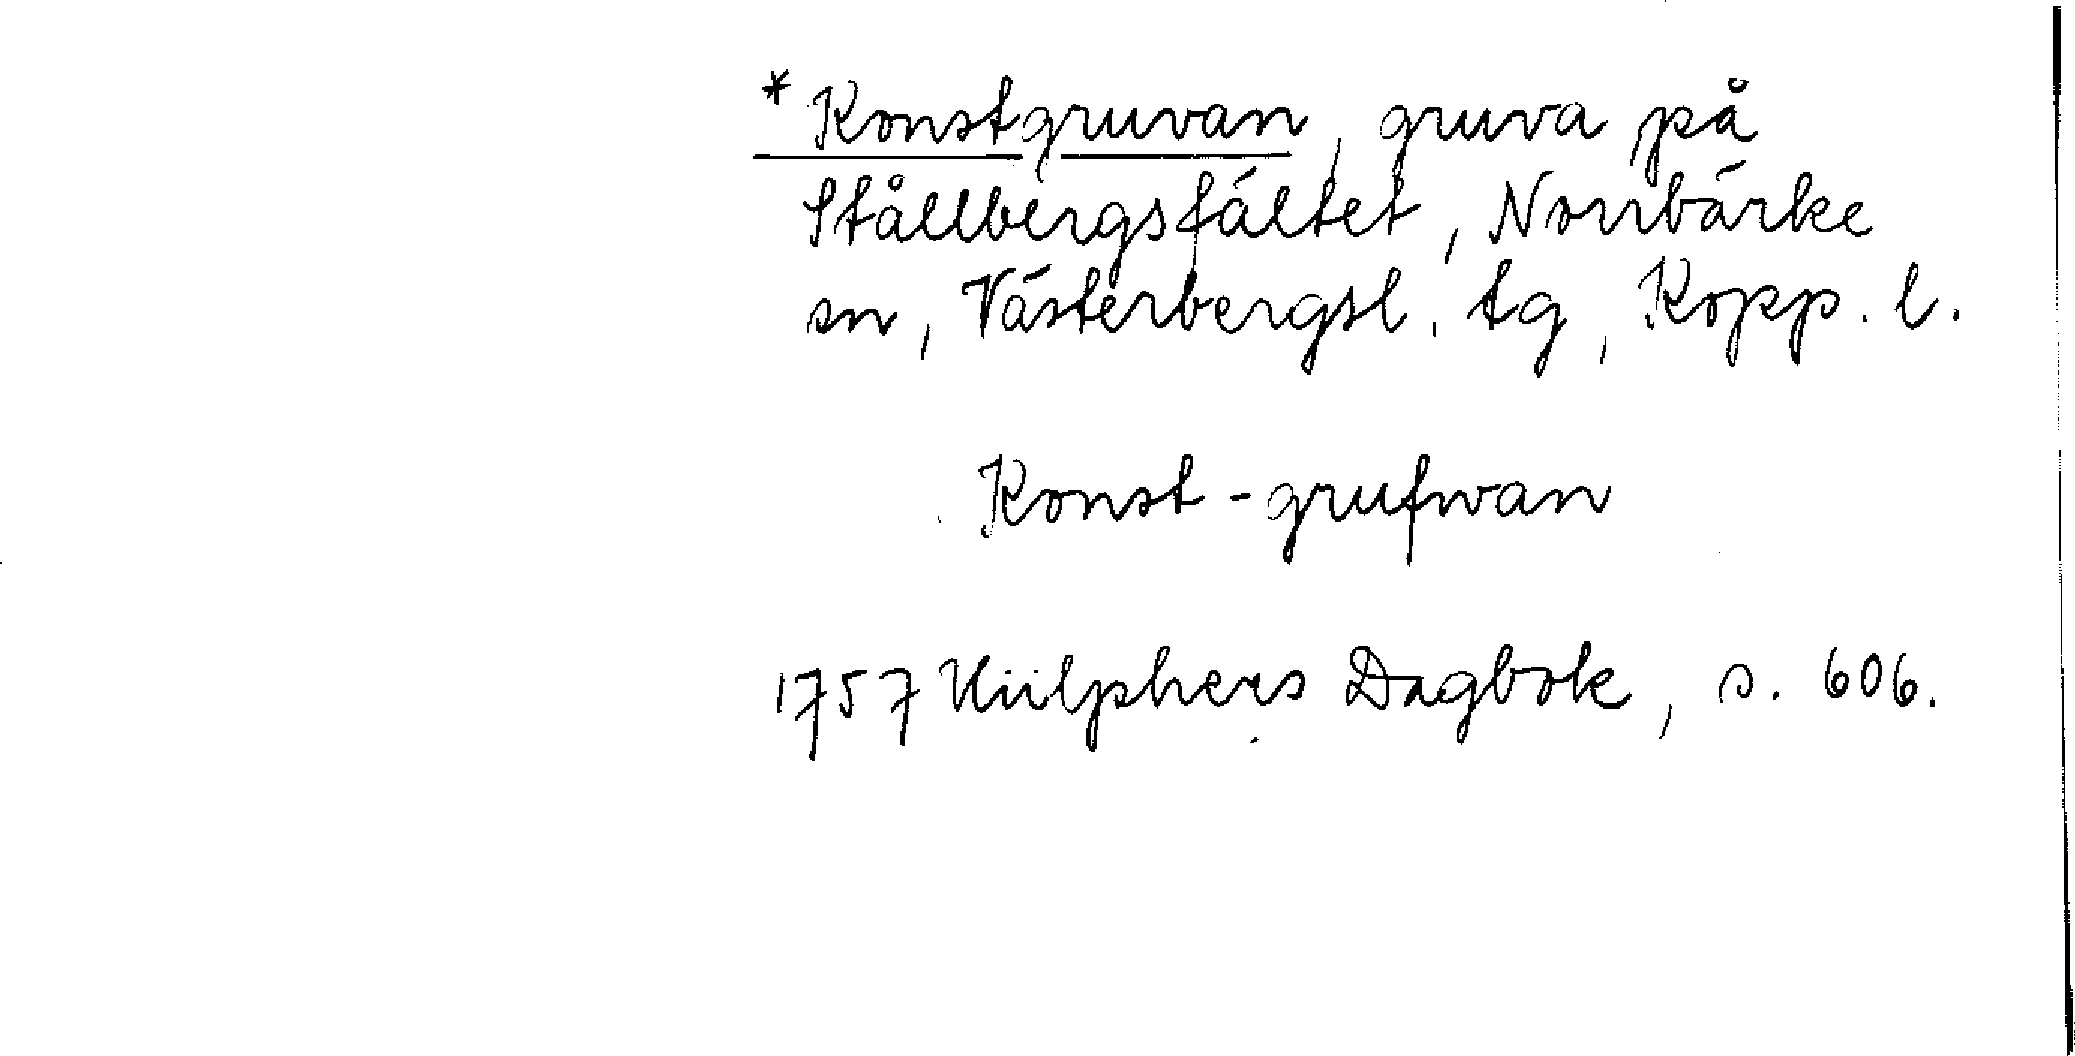 * Konstgruvan, gruva på
Stållbergsfältet, Norrbärke
sn, Västerbergsl. tg, Kopp. l.
Konst-grufwan
1757 Hülphers Dagbok, s. 606.